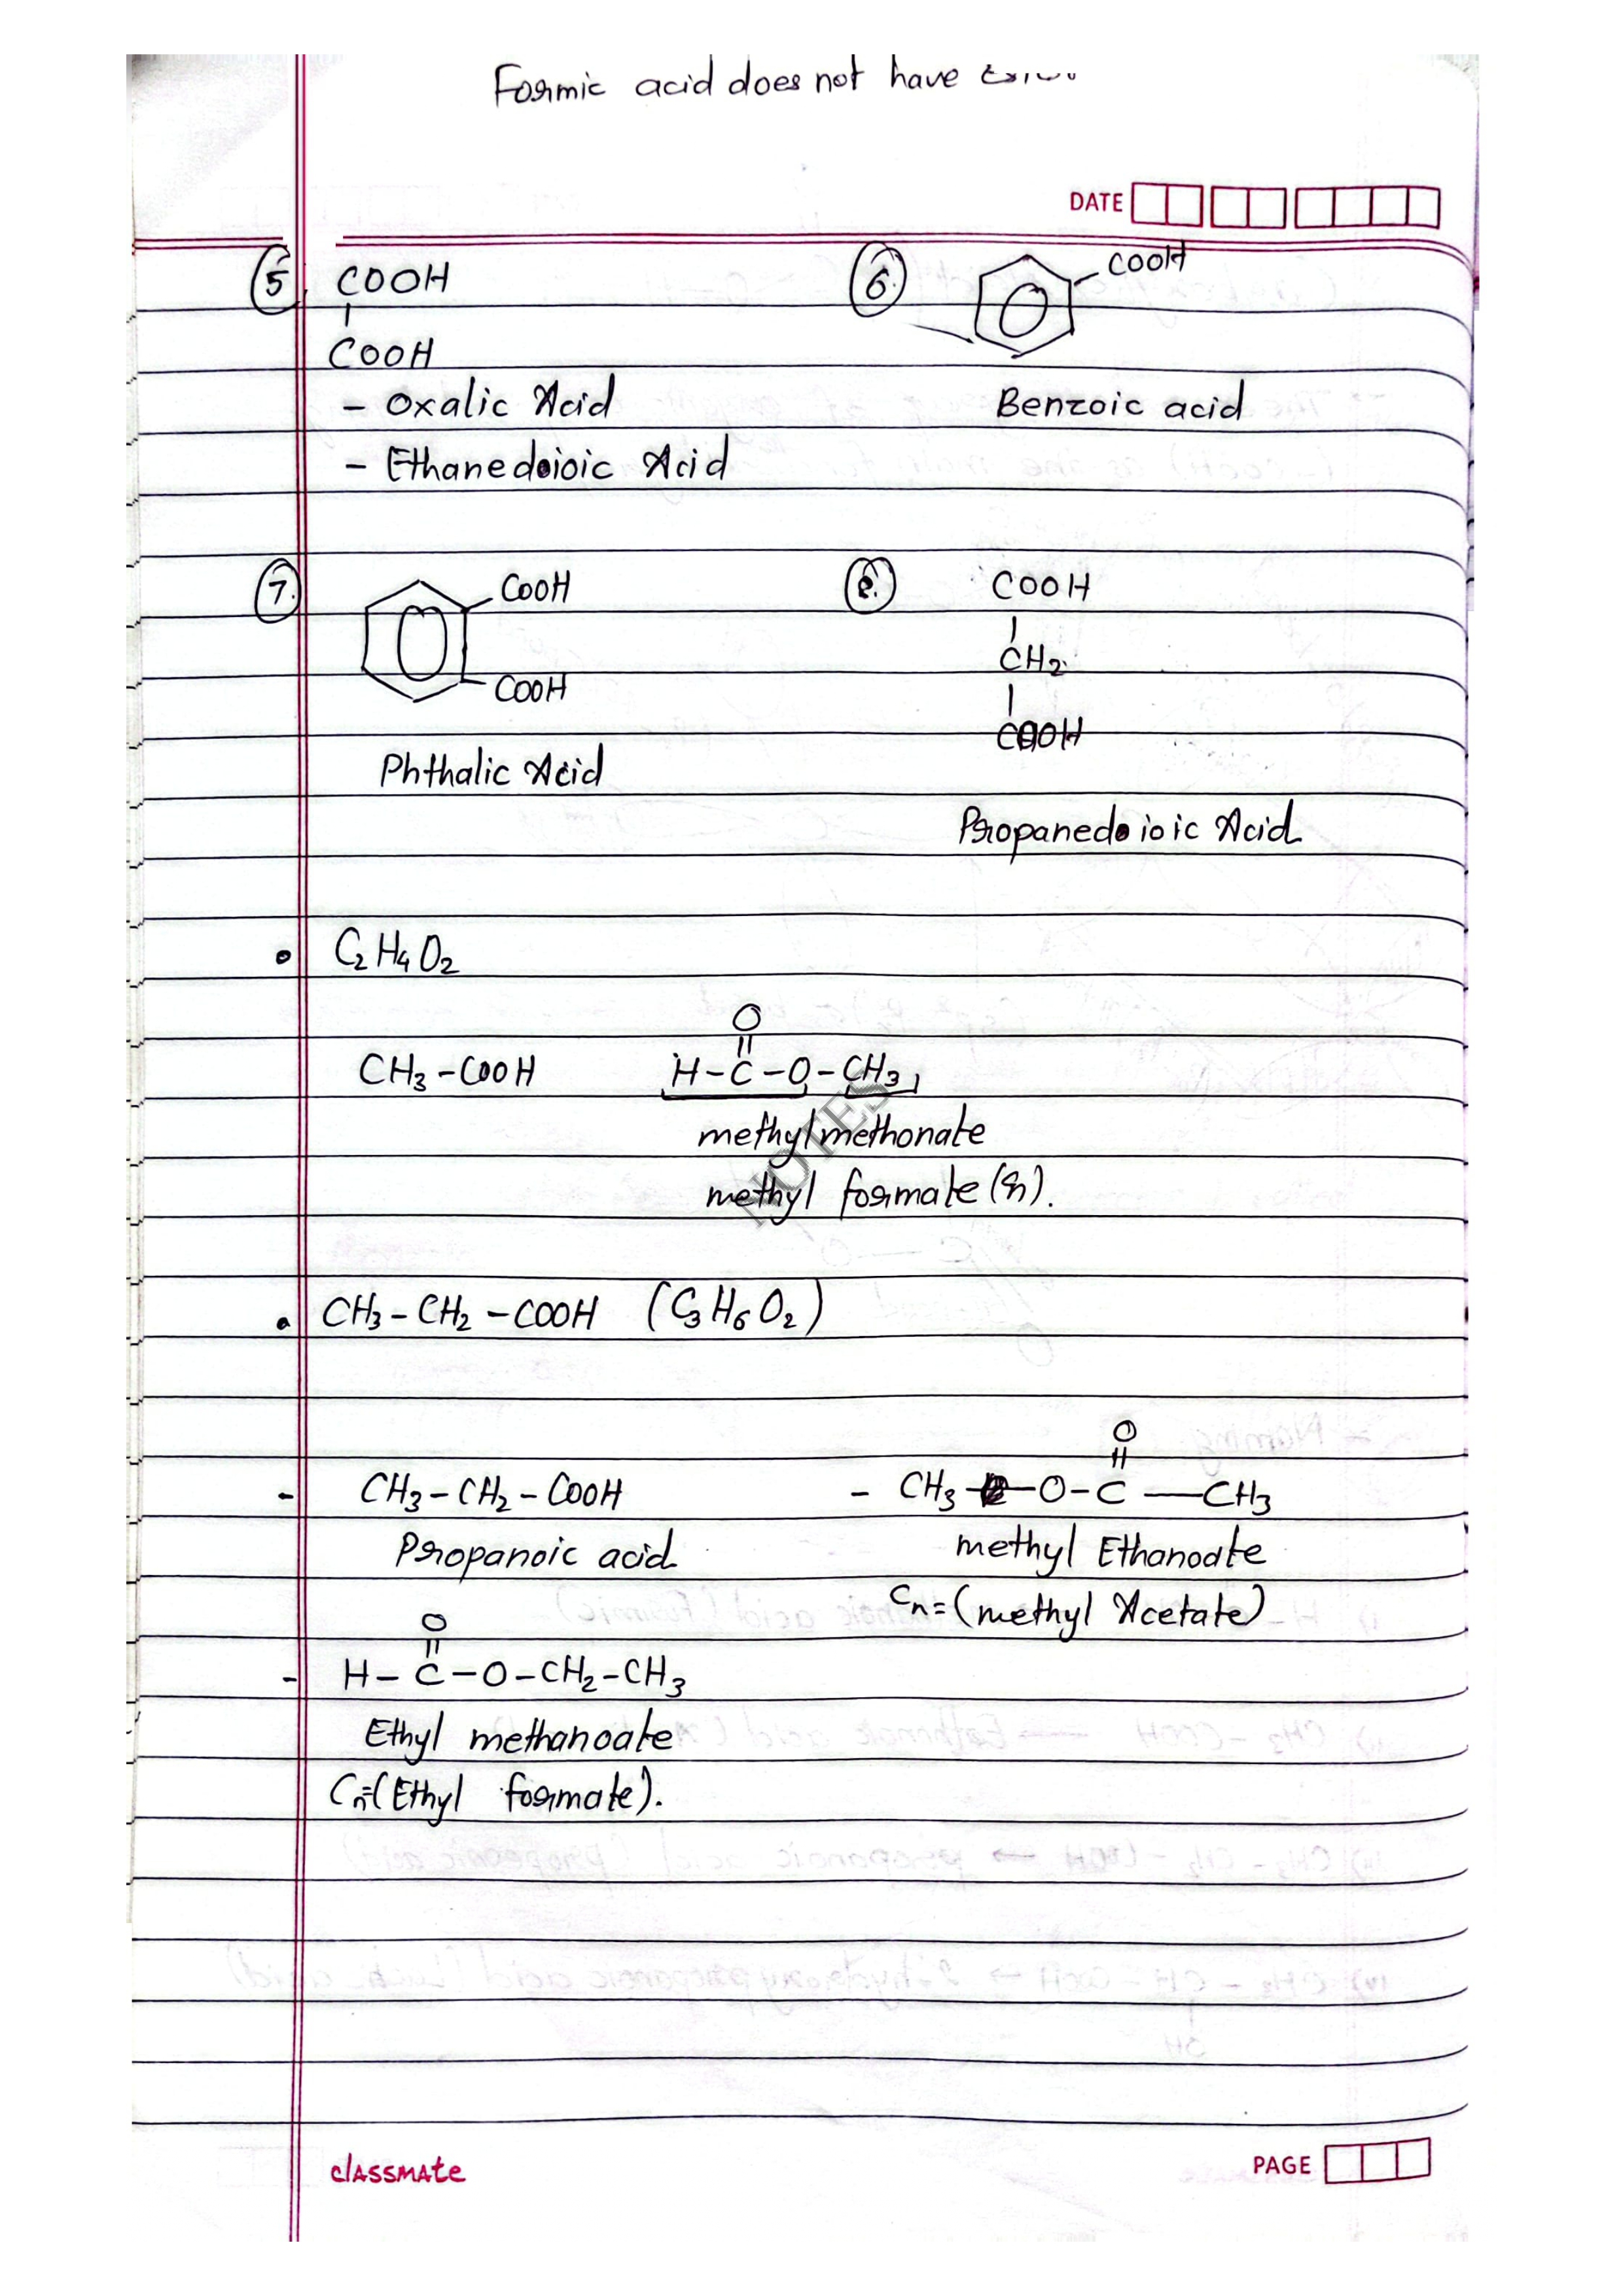 Formic acid does not have
DATE
5 COOH
COOH
- Oxalic Acid
- Ethanedioic Acid
6. COOH
Benzoic acid
7. COOH
COOH
Phthalic Acid
8. COOH
CH2
COOH
Propanedioic Acid
• C2H4O2
O
CH3-COOH H-C-O-CH3
methylmethonate
methyl formate (n).
NOTES
• CH3-CH2-COOH (C3H6O2)
- CH3-CH2-COOH
Propanoic acid
O
- CH3-O-C-CH3
methyl Ethanoate
Cn=(methyl Acetate)
O
- H-C-O-CH2-CH3
Ethyl methanoate
Cn=(Ethyl formate).
classmate
PAGE